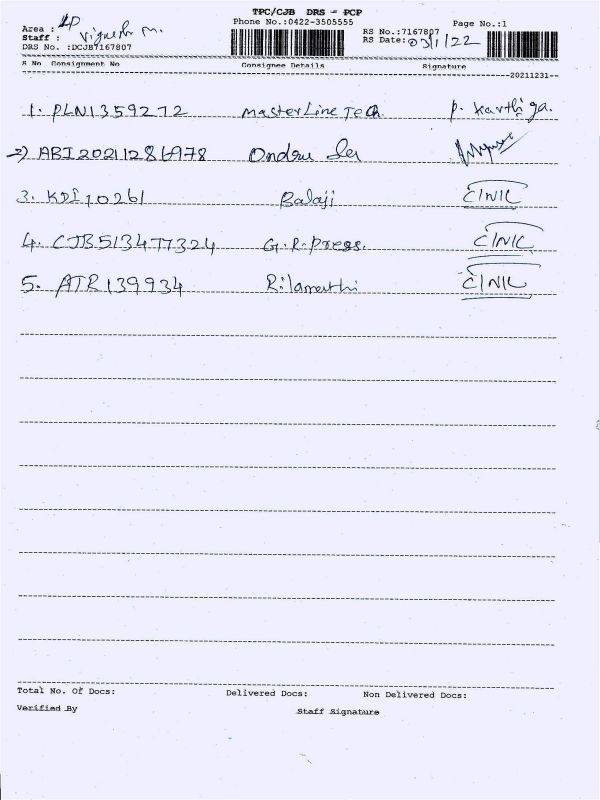 TPC/CJB DRS - PCP
Phone No.:0422-3505555
Page No.:1
Area :
Staff : Vignesh M.
RS No.:7167807
RS Date: 03/1/22
DRS No. :DCJB7167807
S No Consignment No Consignee Details Signature
20211231
1. PLN1359272 MasterLine Tech P. Karthiga.
2) ABI20211286978
3. KDI70261 Balaji CINIC
4. CJB513477324 G.R.Press. CINIC
5. ATR139934 CINIC
Total No. Of Docs: Delivered Docs: Non Delivered Docs:
Verified By Staff Signature